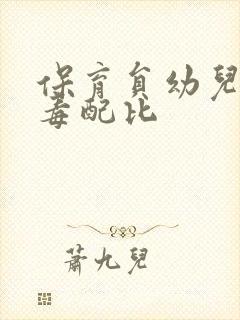 保育員幼兒
毒配比
蕭九兒